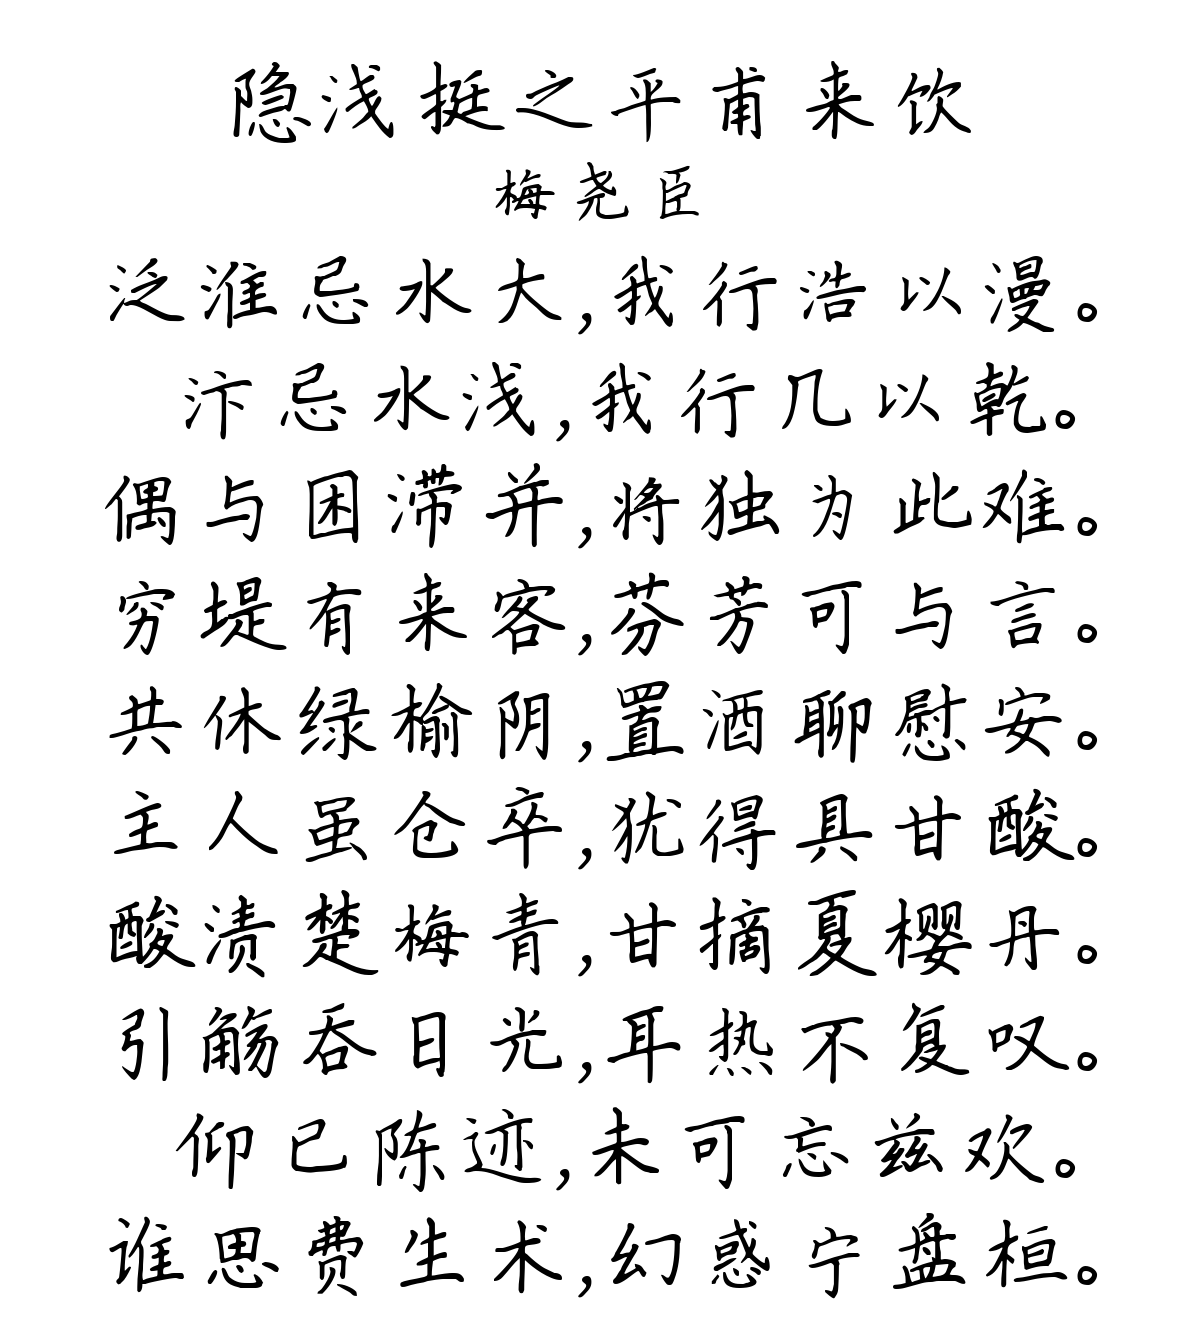 隐浅挺之平甫来饮
梅尧臣
泛淮忌水大,我行浩以漫。
汴忌水浅,我行几以乾。
偶与困滞并,将独为此难。
穷堤有来客,芬芳可与言。
共休绿榆阴,置酒聊慰安。
主人虽仓卒,犹得具甘酸。
酸渍楚梅青,甘摘夏樱丹。
引觞吞日光,耳热不复叹。
仰已陈迹,未可忘兹欢。
谁思费生术,幻惑宁盘桓。